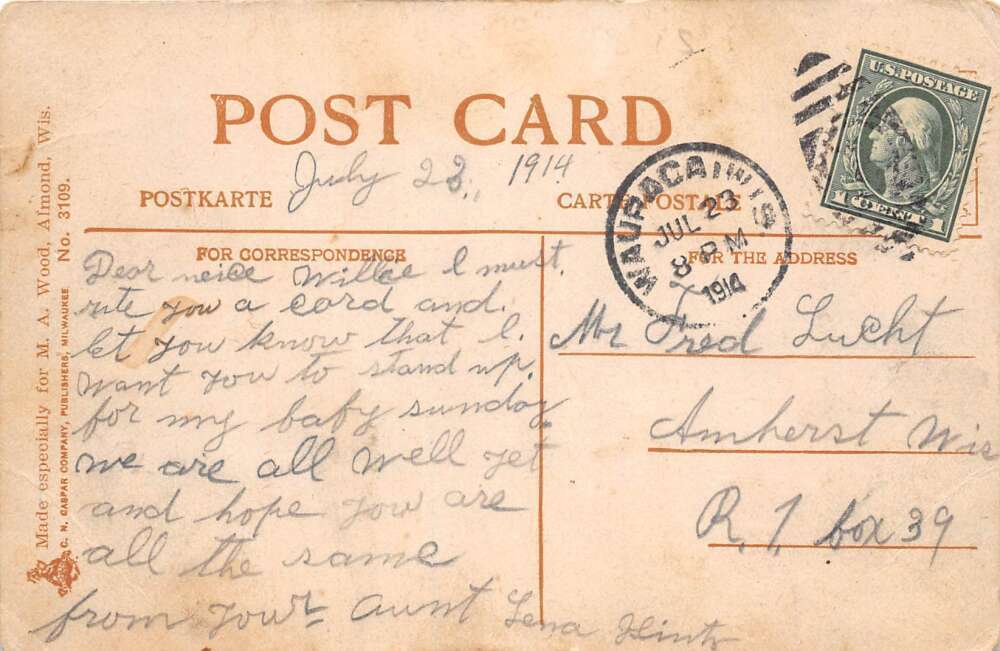 POST CARD
July 23, 1914
POSTKARTE
CARTE POSTALE
FOR CORRESPONDENCE
FOR THE ADDRESS
Dear neice Willie I must.
rite you a card and.
let you know that I.
want you to stand up.
for my baby sunday
we are all well yet
and hope you are
all the same
from your aunt Lena Hintz
Mr Fred Lucht
Amherst Wis
R. 1 box 39
WAUPACA WIS
JUL 23
8 PM
1914
U.S. POSTAGE
1 CENT 1
Made especially for M. A. Wood, Almond, Wis.
C. N. CASPAR COMPANY, PUBLISHERS, MILWAUKEE No. 3109.